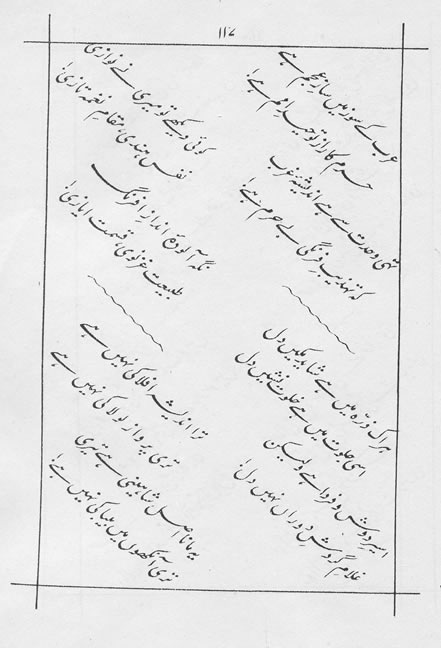 عرب کے سوز میں سازِ عجم ہے
حرم کا راز توحیدِ امم ہے!
تہی وحدت سے ہے اندیشۂ غرب
کہ تہذیبِ فرنگی بے حرم ہے!
کوئی دیکھے تو میری نے نوازی
نفس ہندی، مقامِ نغمہ تازی!
نگہ آلودۂ اندازِ افرنگ
طبیعت غزنوی، قسمت ایازی!
ہر اک ذرّہ میں ہے شاید مکیں دل
اسی جلوت میں ہے خلوت نشیں دل
اسیرِ دوش و فردا ہے ولیکن
غلامِ گردشِ دوراں نہیں دل!
ترا اندیشہ افلاکی نہیں ہے
تری پرواز لولاکی نہیں ہے
یہ مانا اصل شاہینی ہے تیری
تری آنکھوں میں بیباکی نہیں ہے!